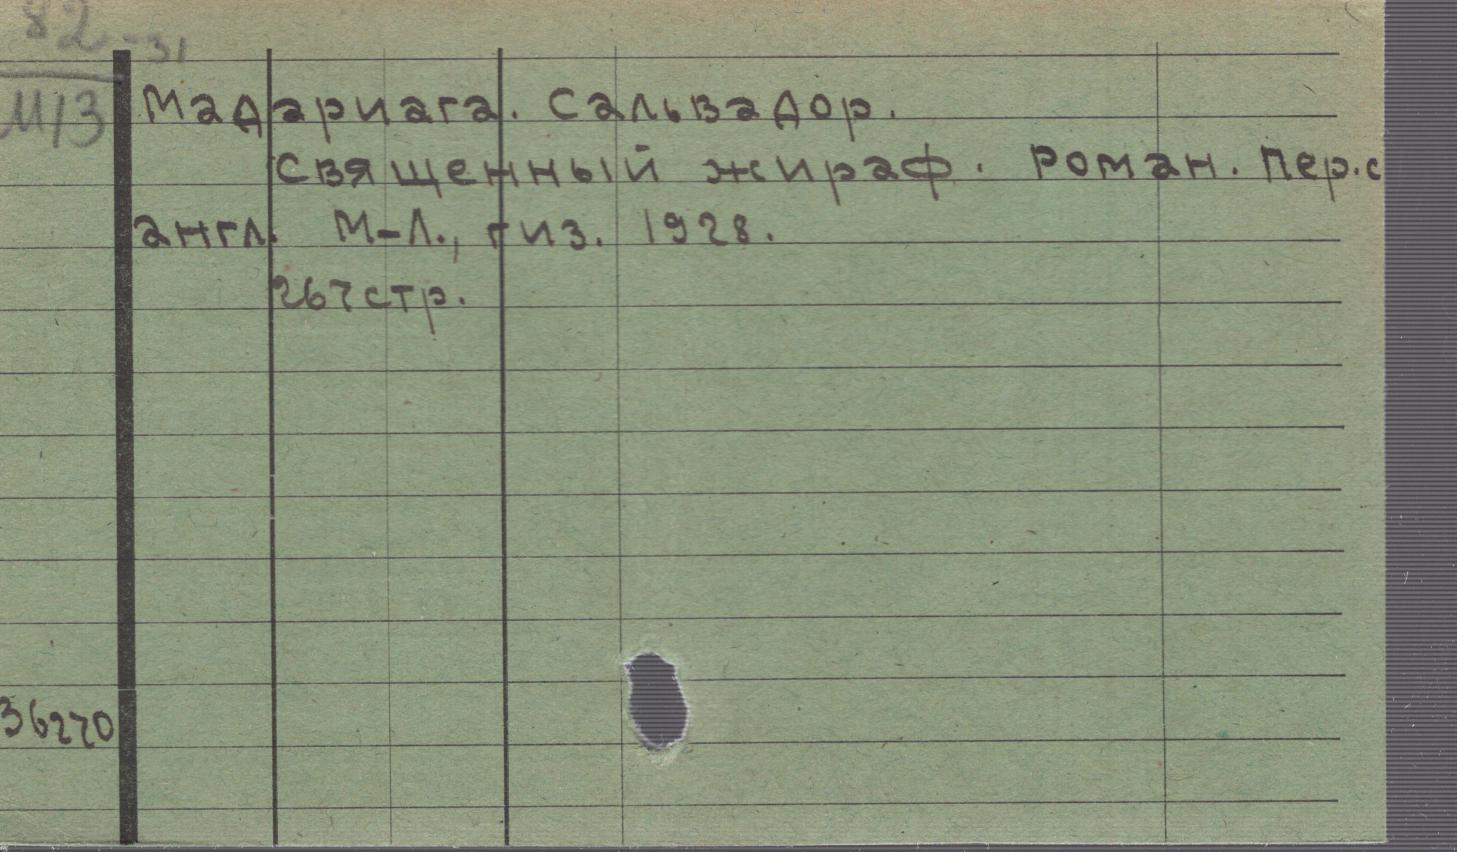 82-31
М13
Мадариага. Сальвадор.
Священный жираф. Роман. Пер.с
англ. М-Л., Гиз. 1928.
267 стр.
36270